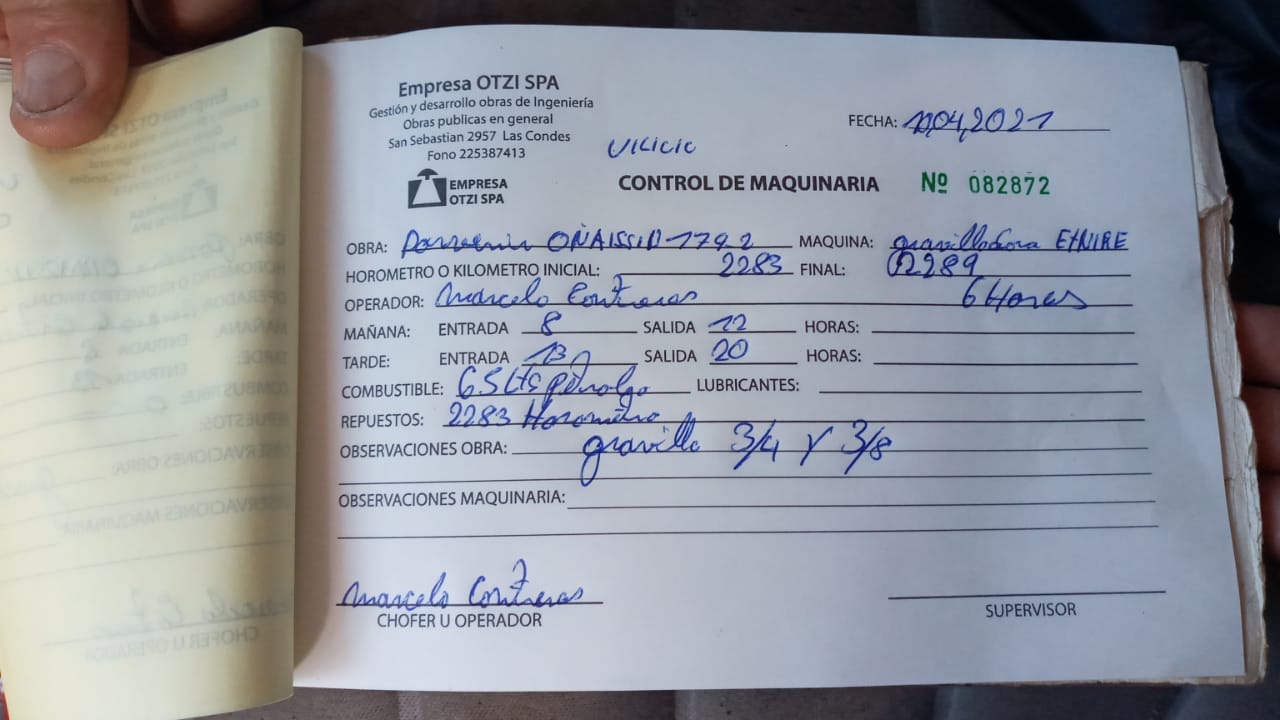 Empresa OTZI SPA
Gestión y desarrollo obras de Ingeniería
Obras publicas en general
San Sebastian 2957 Las Condes
Fono 225387413
FECHA: 04,2021
EMPRESA
OTZI SPA
CONTROL DE MAQUINARIA Nº 082872
OBRA: MAQUINA:
HOROMETRO O KILOMETRO INICIAL: 2283 FINAL: 2289
OPERADOR: Marcelo Contreras 6 Horas
MAÑANA: ENTRADA 8 SALIDA 12 HORAS:
TARDE: ENTRADA 13 SALIDA 20 HORAS:
COMBUSTIBLE: 65 Lts LUBRICANTES:
REPUESTOS: 2283 Horometro
OBSERVACIONES OBRA: gravilla 3/4 Y 3/8
OBSERVACIONES MAQUINARIA:
Marcelo Contreras
CHOFER U OPERADOR
SUPERVISOR